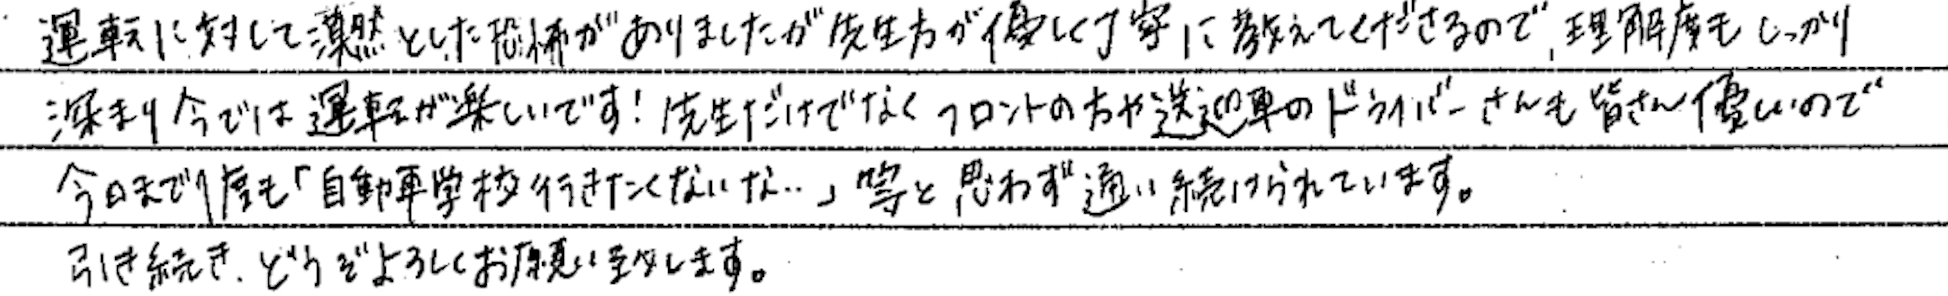 運転に対して漠然とした恐怖がありましたが先生方が優しく丁寧に教えてくださるので、理解度もしっかり
深まり今では運転が楽しいです！先生だけでなくフロントの方や送迎車のドライバーさんも皆さん優しいので
今日まで1度も「自動車学校行きたくないな…」等と思わず通い続けられています。
引き続き、どうぞよろしくお願い致します。